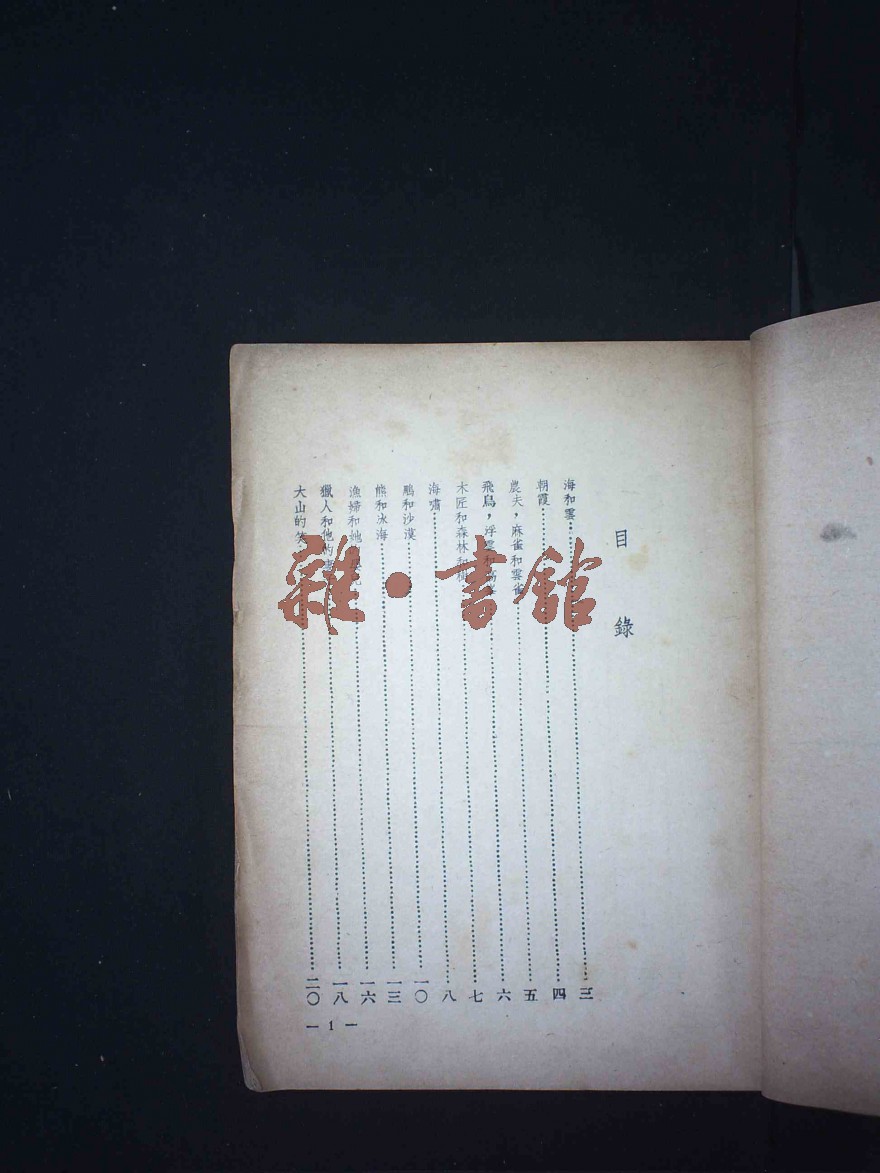 目錄
海和雲……三
朝霞……四
農夫，麻雀和雲雀……五
飛鳥，浮雲和……六
木匠和森林和……七
海嘯……八
和沙漠……一〇
熊和冰海……一三
漁婦和她……一六
獵人和他的……一八
大山的笑……二〇
— 1 —
雜·書館